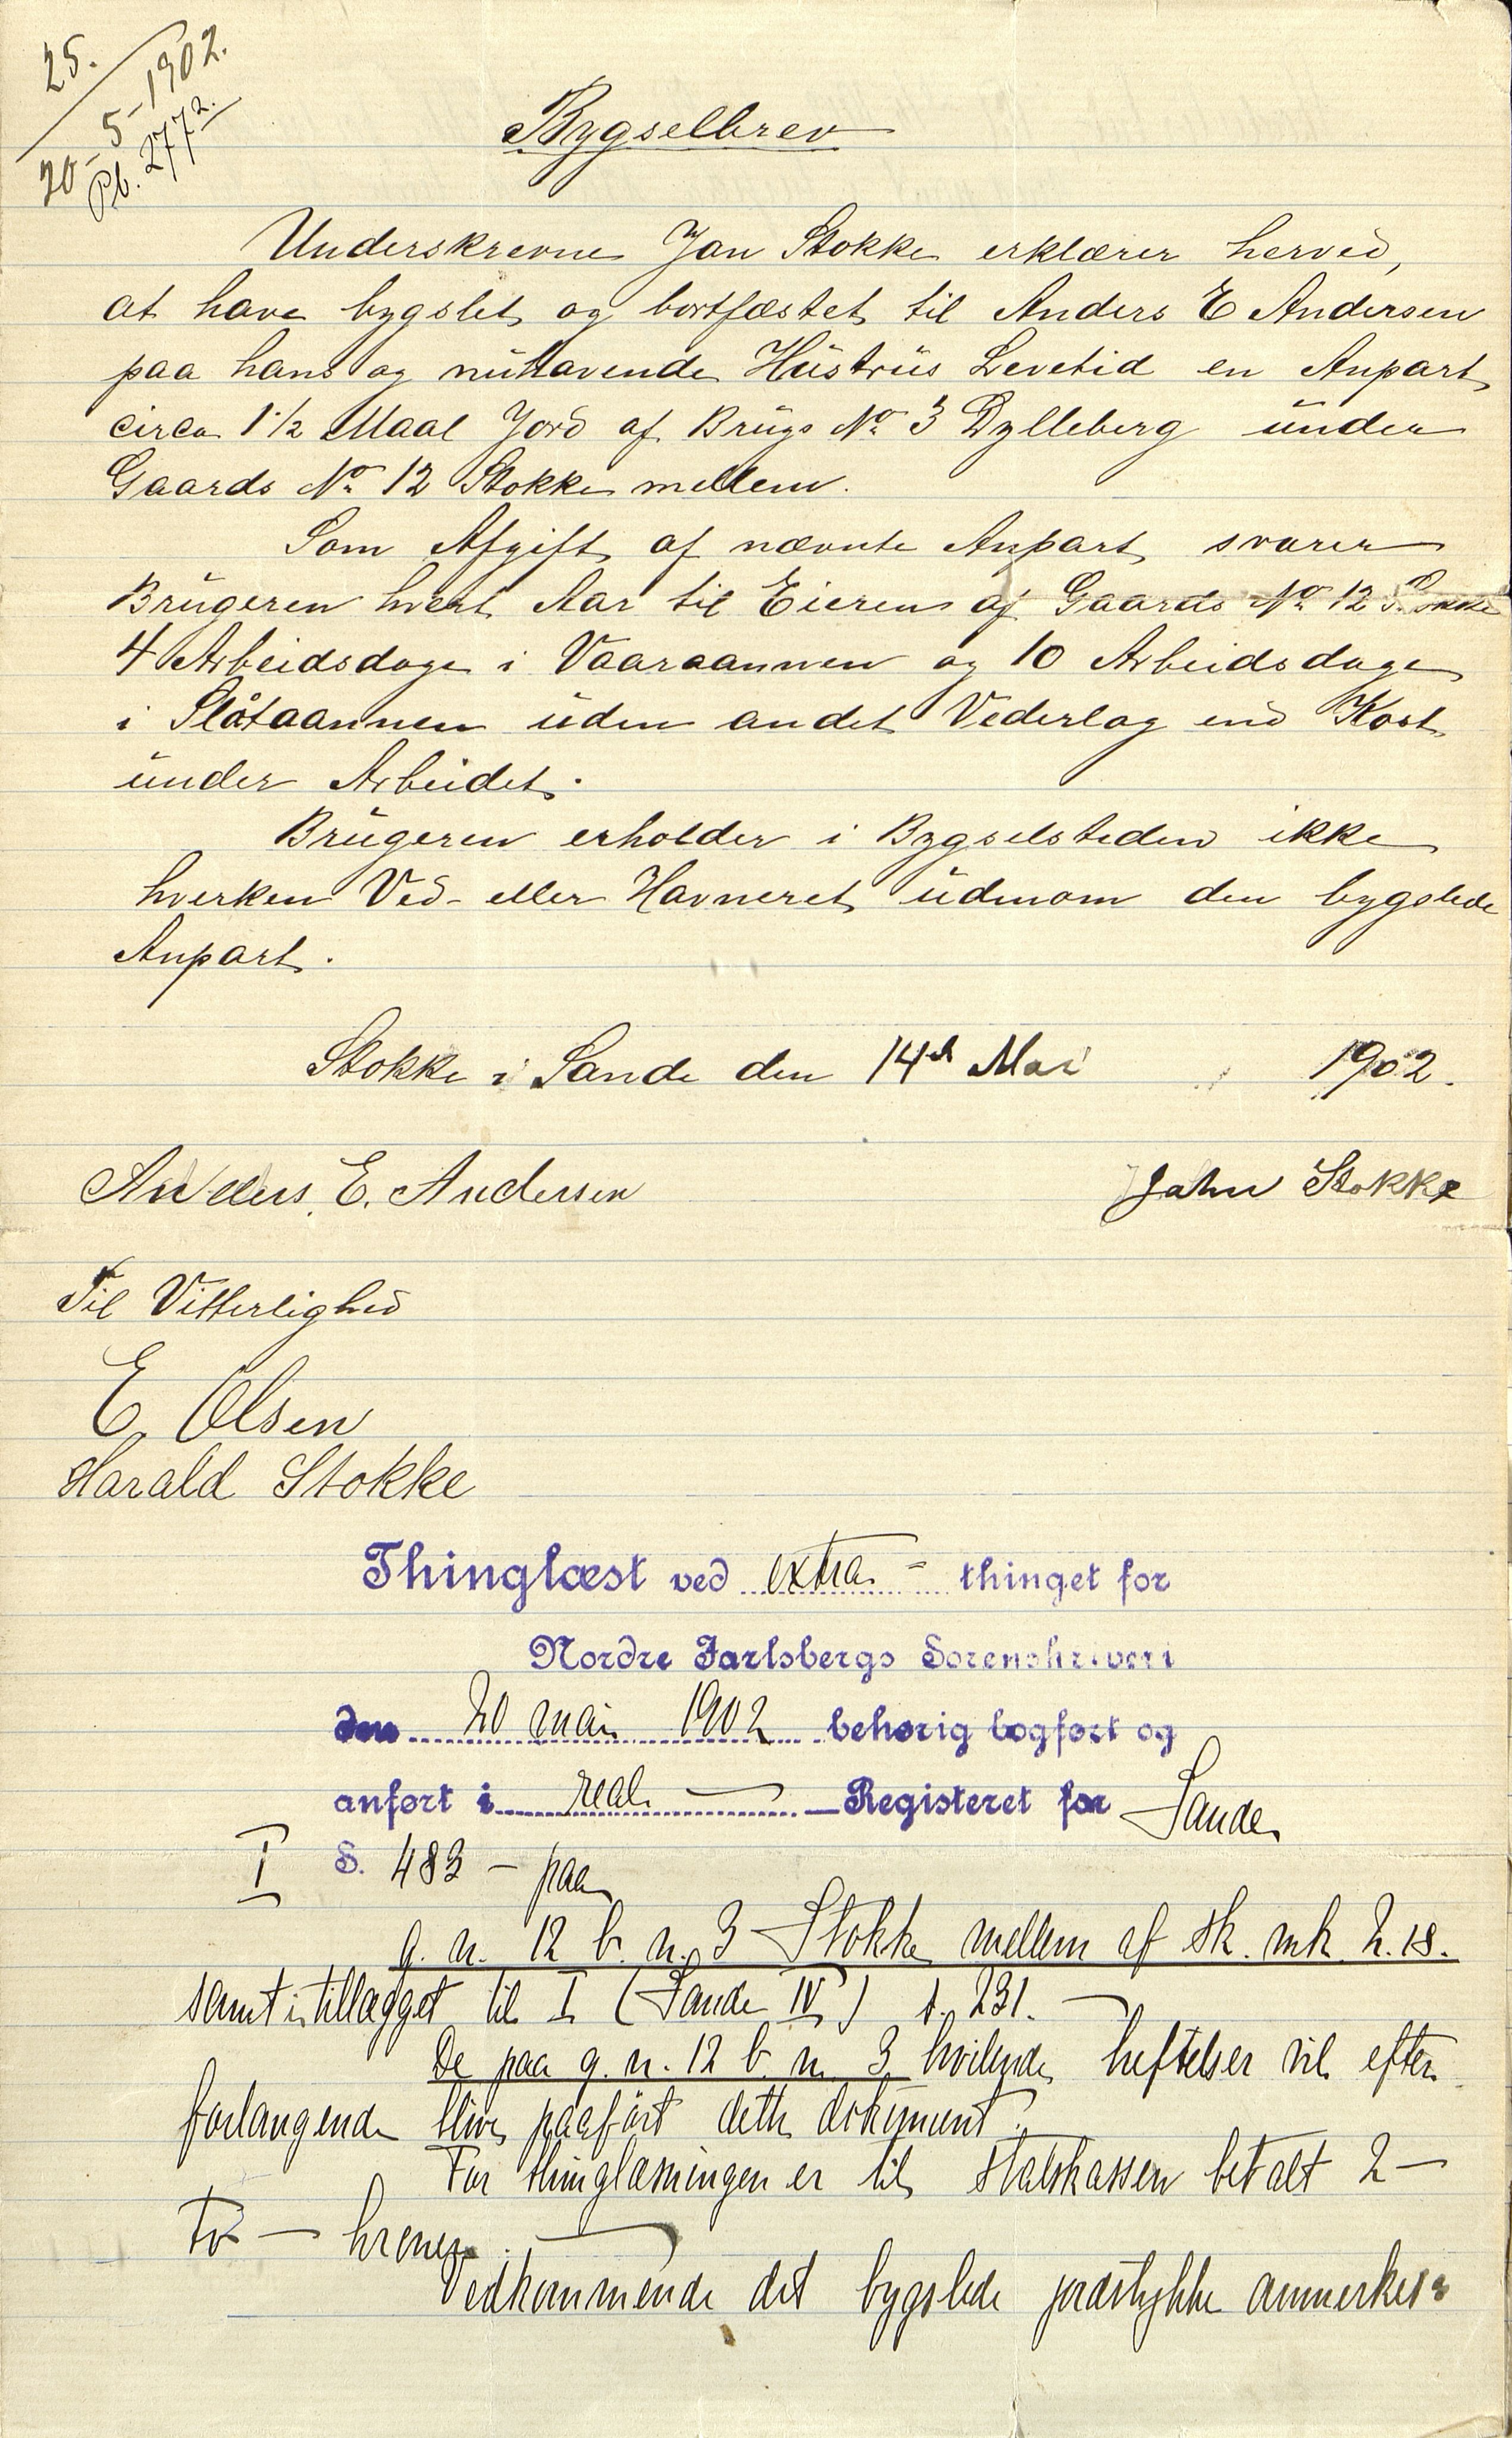 25.
20-5-1902.
Pb. 277²
Bygselbrev
Underskrevne Jan Stokke erklærer herved,
at have bygslet og bortfæstet til Anders E Andersen
paa hans og nuhavende Hustrus Levetid en Anpart
circa 1 1/2 Maal Jord af Brugs No 3 Dylleberg under
Gaards No 12 Stokke mellem.
Som Afgift af nævnte Anpart svarer
Brugeren hvert Aar til Eieren af Gaards No 12 Stokke
4 Arbeidsdage i Vaaraannen og 10 Arbeidsdage
i Slåtaannen uden andet Vederlag end Kost
under Arbeidet.
Brugeren erholder i Bygselstiden ikke
hverken Ved- eller Havneret udenom den bygslede
Anpart.
Stokke i Sande den 14de Mai 1902.
Anders. E. Andersen Jahn Stokke
Til Vitterlighed
E. Olsen
Harald Stokke
Thinglæst ved extra- thinget for
Nordre Jarlsbergs Sorenskriveri
den 20 mai 1902 behørig bogført og
anført i real — Registeret for Sande
I S. 483 – paa
g. n. 12 b. n. 3 Stokke mellem af sk. mk. 2.18.
samt i tillægget til I (Sande IV) s. 231. —
De paa g. n. 12 b. n. 3 hvilende heftelser vil efter
forlangende blive paaført dette dokument.
For thinglæsningen er til statskassen betalt 2 —
to — kroner. —
Vedkommende det bygslede jordstykke anmerkes: